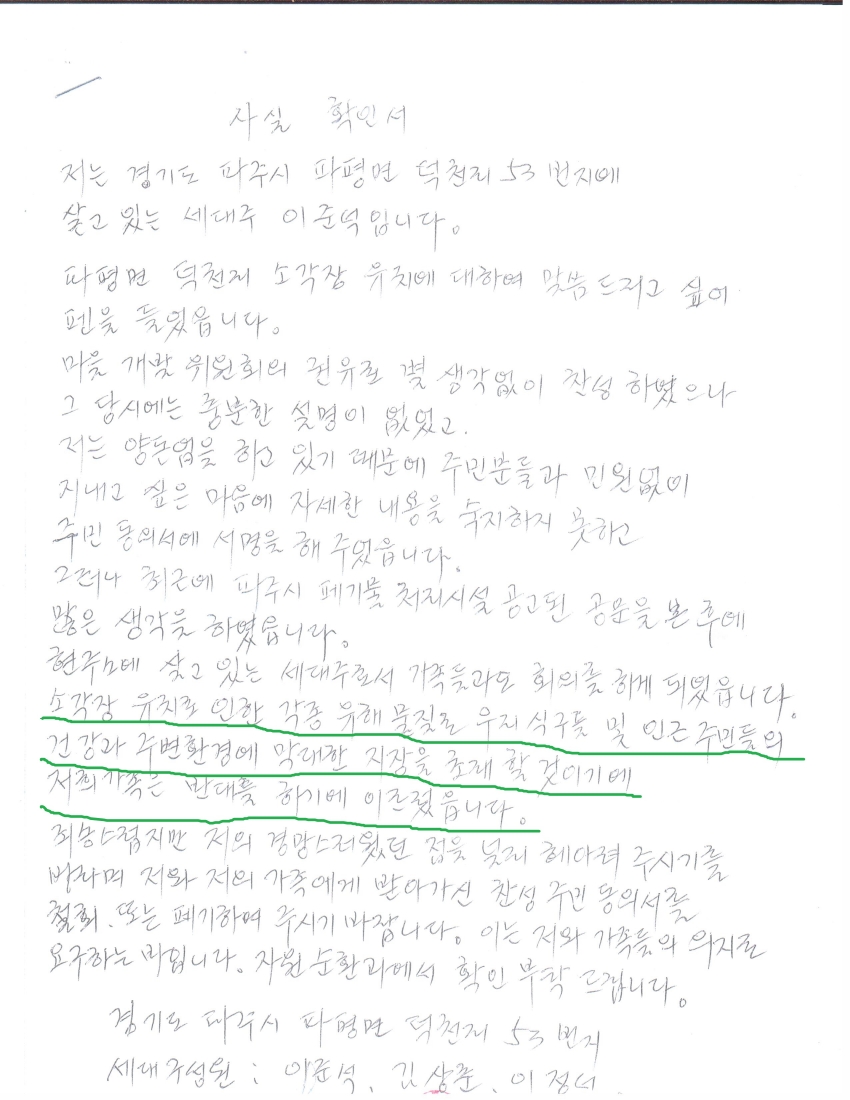 사실 확인서
저는 경기도 파주시 파평면 덕천리 53 번지에
살고 있는 세대주 이준석입니다.
파평면 덕천리 소각장 유치에 대하여 말씀드리고 싶어
펜을 들었읍니다.
마을 개발 위원회의 권유로 별 생각없이 찬성 하였으나
그 당시에는 충분한 설명이 없었고.
저는 양돈업을 하고 있기 때문에 주민분들과 민원없이
지내고 싶은 마음에 자세한 내용을 숙지하지 못하고
주민 동의서에 서명을 해 주었읍니다.
그러나 최근에 파주시 페기물 처리시설 공고된 공문을 본 후에
많은 생각을 하였읍니다.
현주소에 살고 있는 세대주로서 가족들과도 회의를 하게 되었읍니다.
소각장 유치로 인한 각종 유해 물질로 우리 식구들 및 인근 주민들의
건강과 주변환경에 막대한 지장을 초래 할 것이기에
저희가족은 반대를 하기에 이르렀읍니다.
죄송스럽지만 저의 경망스러웠던 점을 널리 헤아려 주시기를
바라며 저와 저의 가족에게 받아가신 찬성 주민 동의서를
철회. 또는 폐기하여 주시기 바랍니다. 이는 저와 가족들의 의지로
요구하는 바입니다. 자원 순환과에서 확인 부탁 드립니다.
경기도 파주시 파평면 덕천리 53 번지
세대구성원 : 이준석, 김상준, 이정